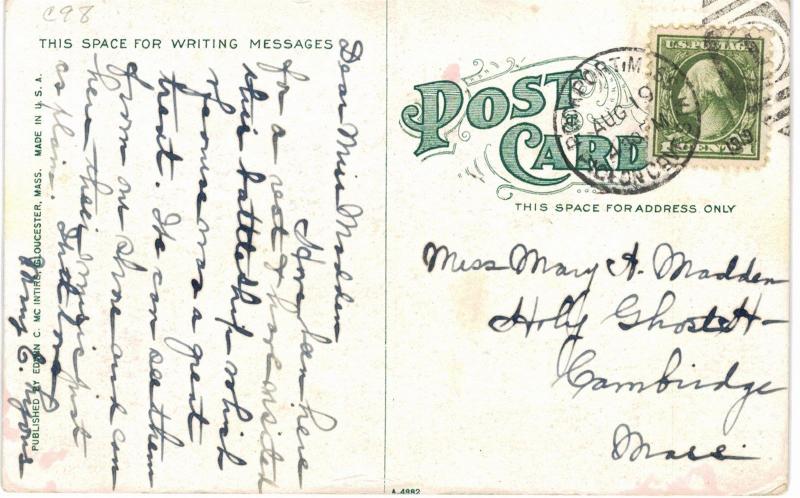 C98
THIS SPACE FOR WRITING MESSAGES
Dear Miss Madden
Have been here
for a rest & have visited
this battleship which
of course was a great
treat. We can see them
from on shore and can
hear their music just
as plain.
Mary E.
PUBLISHED BY EDWIN C. MC INTIRE, GLOUCESTER, MASS. MADE IN U.S.A.
POST
CARD
ROCKPORT, MASS.
AUG 19
1919
U.S. POSTAGE
THIS SPACE FOR ADDRESS ONLY
Miss Mary A. Madden
Holy Ghost H-
Cambridge
Mass.
A-4882